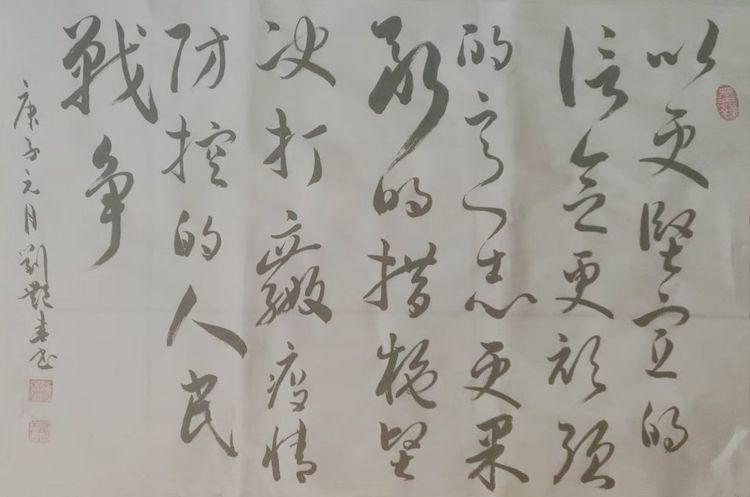 以更坚定的
信念更顽强
的意志更果
敢的措施坚
决打赢疫情
防控的人民
戰争
庚子元月劉艷春书